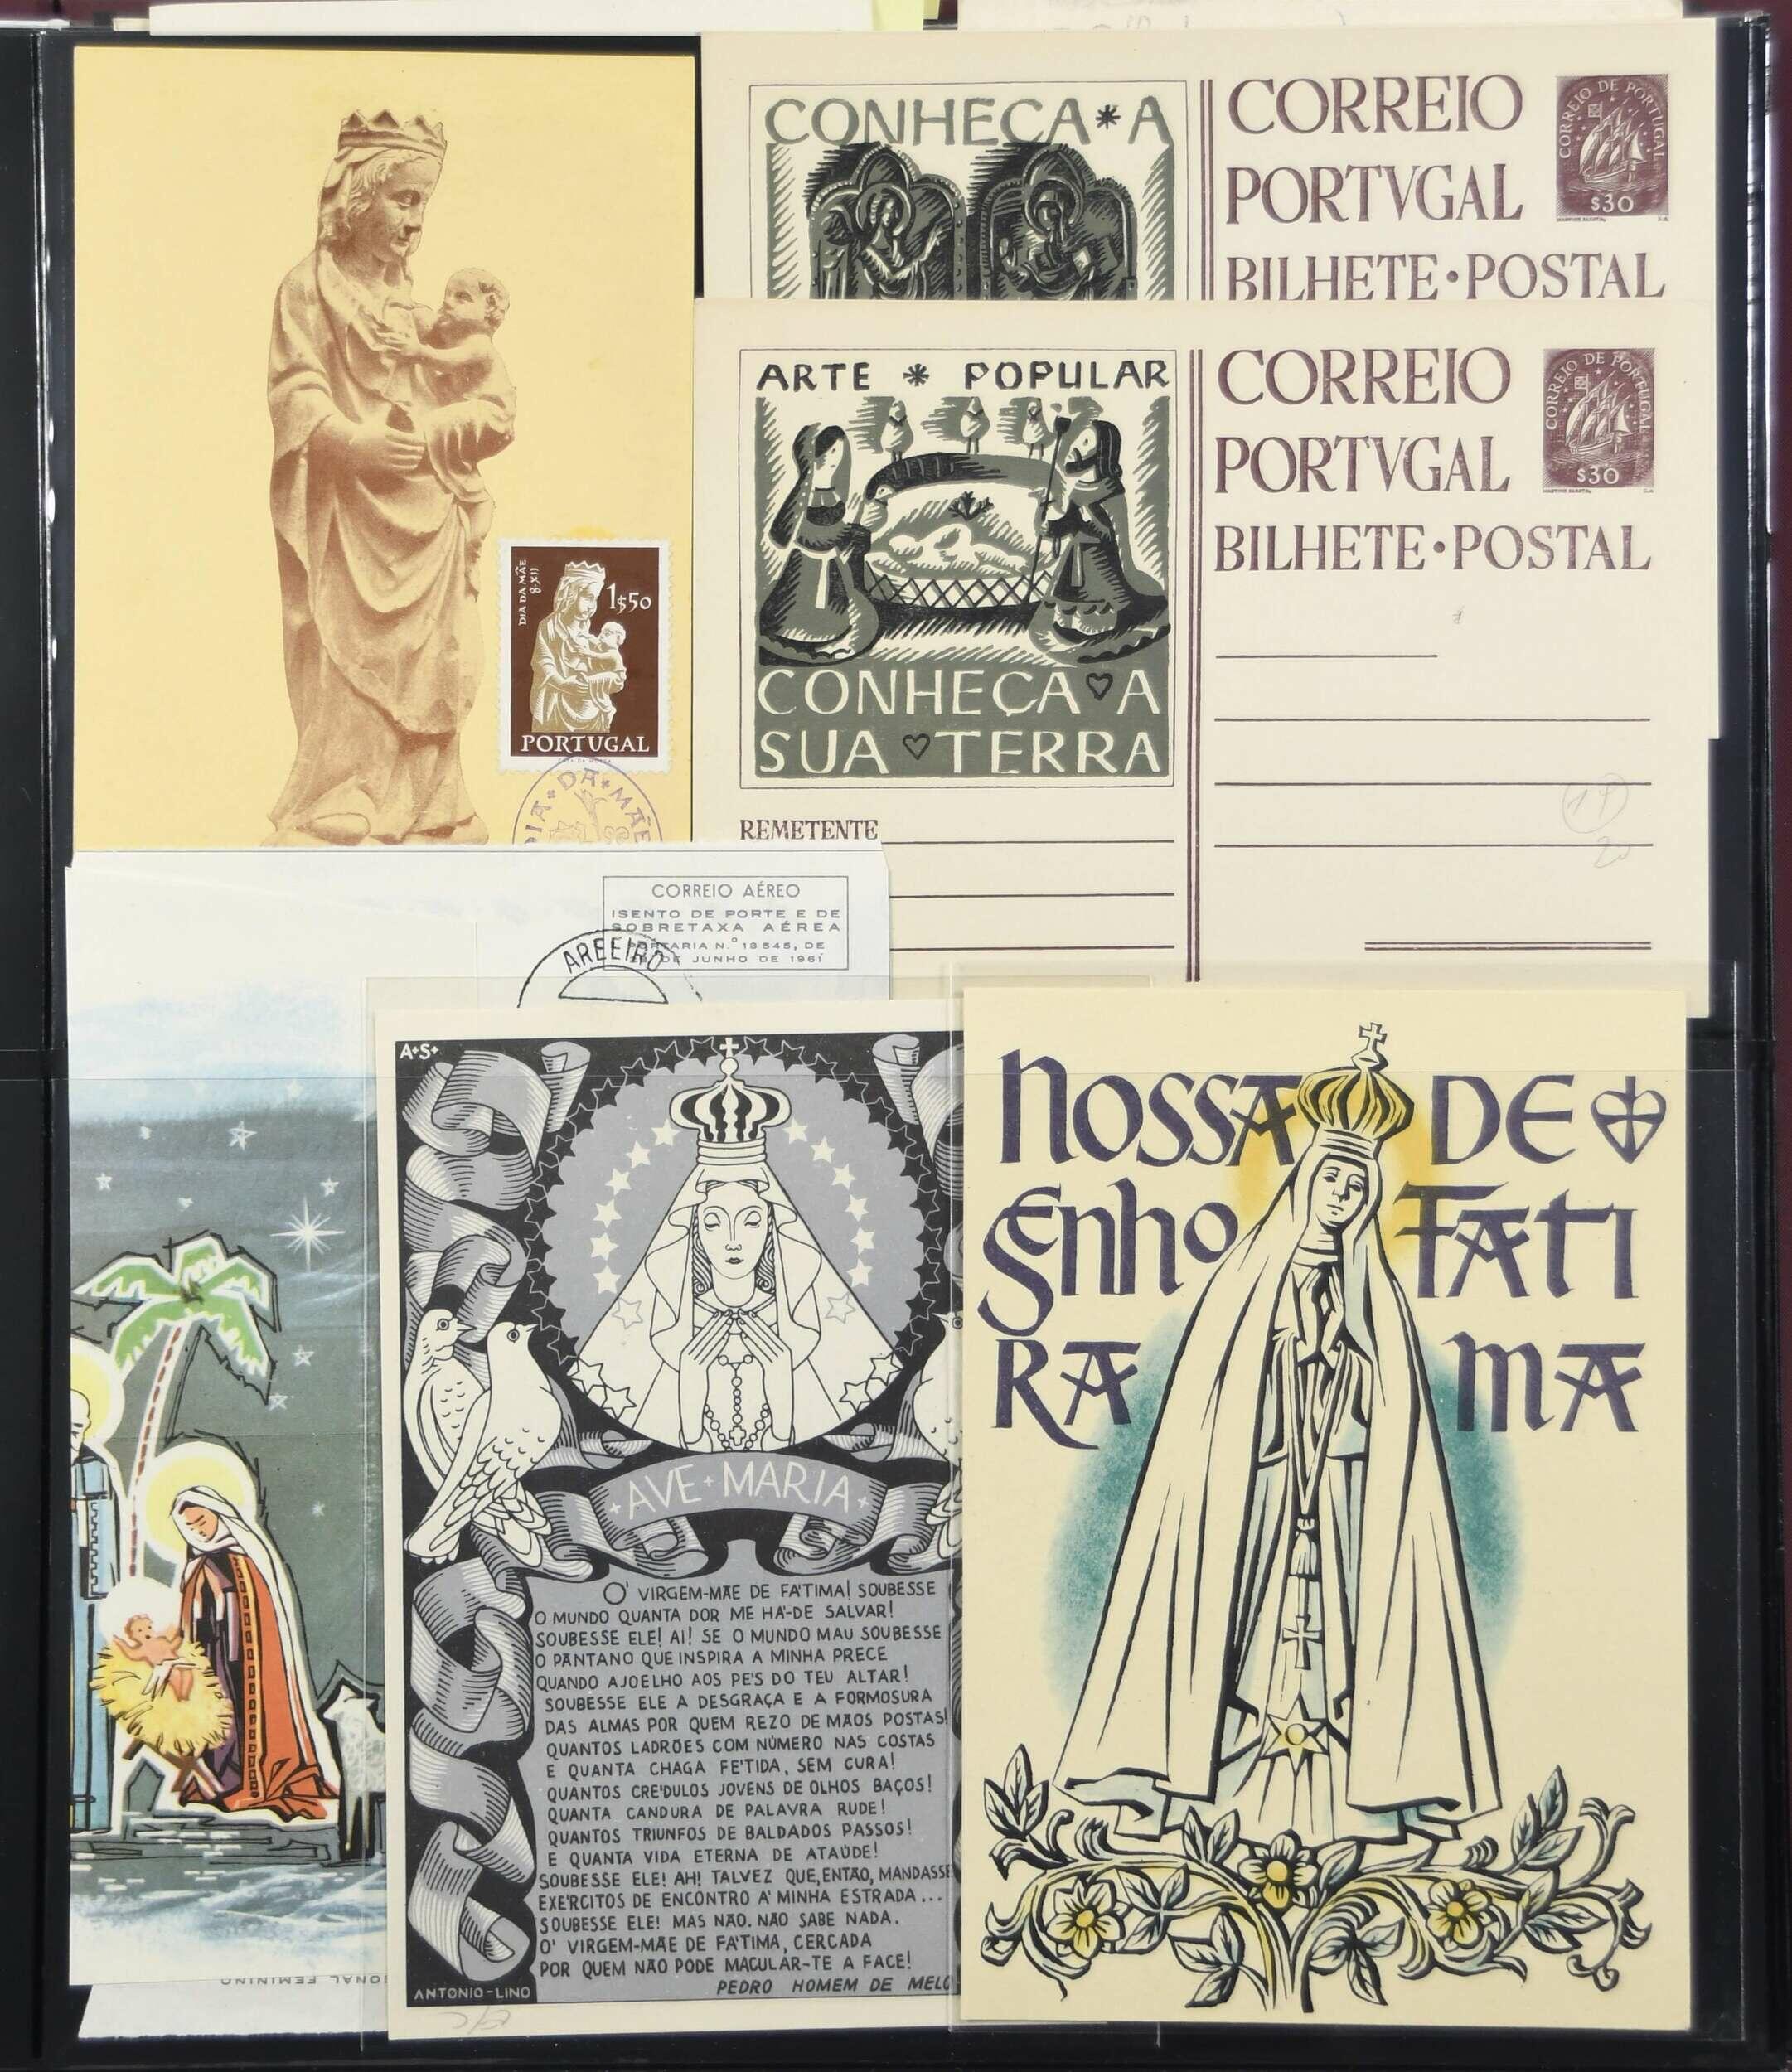 DIA DA MÃE
8·XII
1$50
PORTUGAL
CASA DA MOEDA
DIA DA MÃE
CONHEÇA * A
CORREIO
PORTVGAL
BILHETE · POSTAL
CORREIO DE PORTUGAL
$30
MARTINS BARATA
ARTE * POPULAR
CONHEÇA A
SUA TERRA
REMETENTE
CORREIO
PORTVGAL
BILHETE · POSTAL
CORREIO DE PORTUGAL
$30
MARTINS BARATA
CORREIO AÉREO
ISENTO DE PORTE E DE
SOBRETAXA AÉREA
PORTARIA N.º 18545, DE
DE JUNHO DE 1961
AREEIRO
ONAL FEMININO
A+S+
+AVE+MARIA+
O' VIRGEM-MÃE DE FA'TIMA! SOUBESSE
O MUNDO QUANTA DOR ME HA'-DE SALVAR!
SOUBESSE ELE! AI! SE O MUNDO MAU SOUBESSE
O PÂNTANO QUE INSPIRA A MINHA PRECE
QUANDO AJOELHO AOS PE'S DO TEU ALTAR!
SOUBESSE ELE A DESGRAÇA E A FORMOSURA
DAS ALMAS POR QUEM REZO DE MÃOS POSTAS!
QUANTOS LADRÕES COM NÚMERO NAS COSTAS
E QUANTA CHAGA FE'TIDA, SEM CURA!
QUANTOS CRE'DULOS JOVENS DE OLHOS BAÇOS!
QUANTA CANDURA DE PALAVRA RUDE!
QUANTOS TRIUNFOS DE BALDADOS PASSOS!
E QUANTA VIDA ETERNA DE ATAÚDE!
SOUBESSE ELE! AH! TALVEZ QUE, ENTÃO, MANDASSE
EXE'RCITOS DE ENCONTRO A' MINHA ESTRADA...
SOUBESSE ELE! MAS NÃO. NÃO SABE NADA.
O' VIRGEM-MÃE DE FA'TIMA, CERCADA
POR QUEM NÃO PODE MACULAR-TE A FACE!
PEDRO HOMEM DE MELO
ANTONIO-LINO
NOSSA DE
SENHO FATI
RA MA